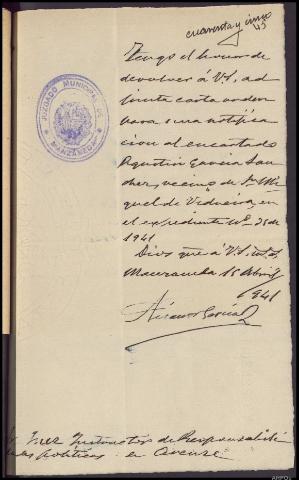 cuarenta y cinco
45
JUZGADO MUNICIPAL DE
MANZANEDA
Tengo el honor de
devolver á V.S, ad
junta carta orden
para una notifica
cion al encartado
Agustin Garcia San
chez, vecino de Sn Mi
guel de Vidueira, en
el expediente nº 25 de
1941
Dios gue á V.S. m. a.
Manzaneda 15 Abril
1941
Garcia
Sr. Juez Instructor de Responsabili
políticas en Orense